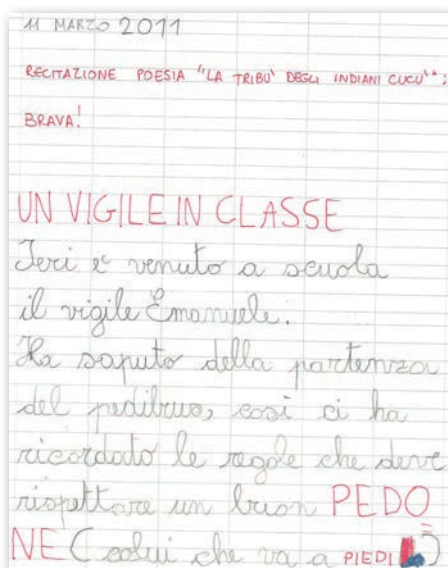 11 MARZO 2011
RECITAZIONE POESIA "LA TRIBU' DEGLI INDIANI CUCU'";
BRAVA!
UN VIGILE IN CLASSE
Ieri è venuto a scuola
il vigile Emanuele.
Ha saputo della partenza
del pedibus, così ci ha
ricordato le regole che deve
rispettare un buon PEDO
NE (colui che va a PIEDI)